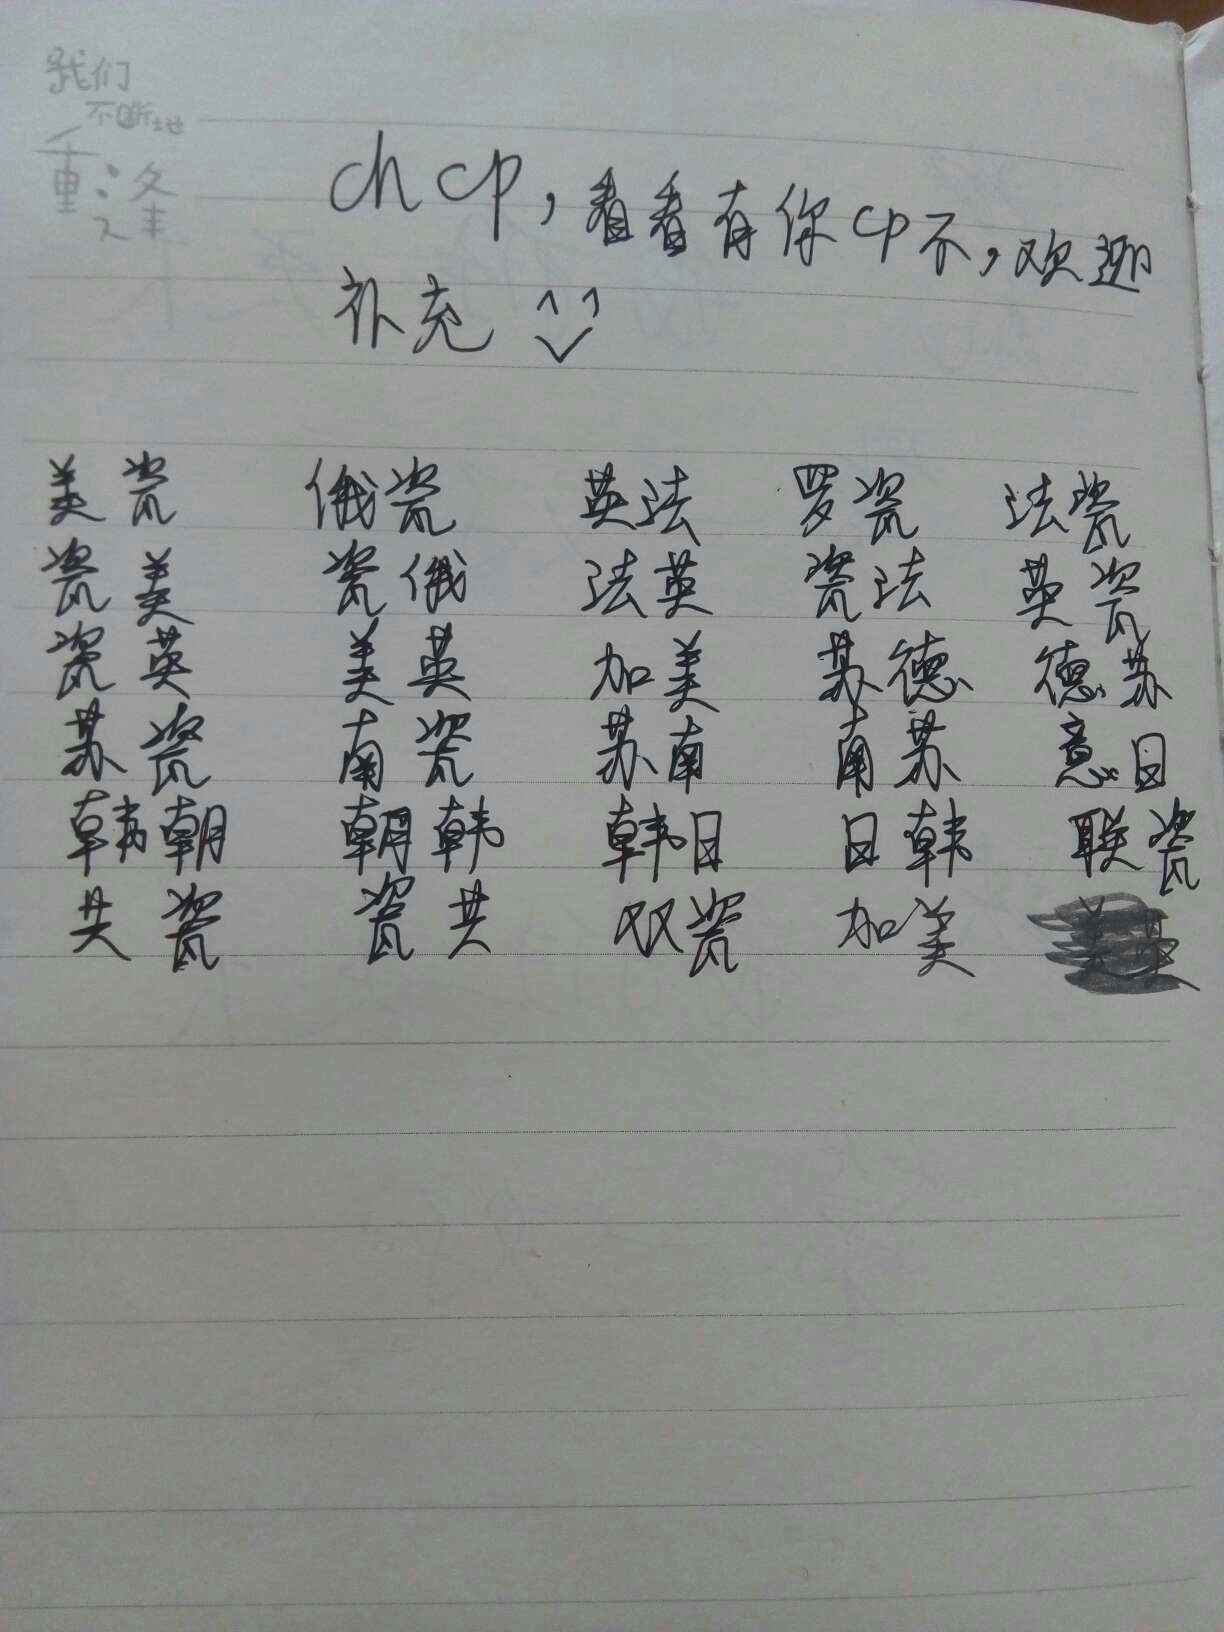 我们
不断地
重逢
ch cp，看看有你cp不，欢迎
补充
美瓷 俄瓷 英法 罗瓷 法瓷
瓷美 瓷俄 法英 瓷法 英瓷
瓷英 美英 加美 苏德 德苏
苏瓷 南瓷 苏南 南苏 意日
韩朝 朝韩 韩日 日韩 联瓷
共瓷 瓷共 双瓷 加美